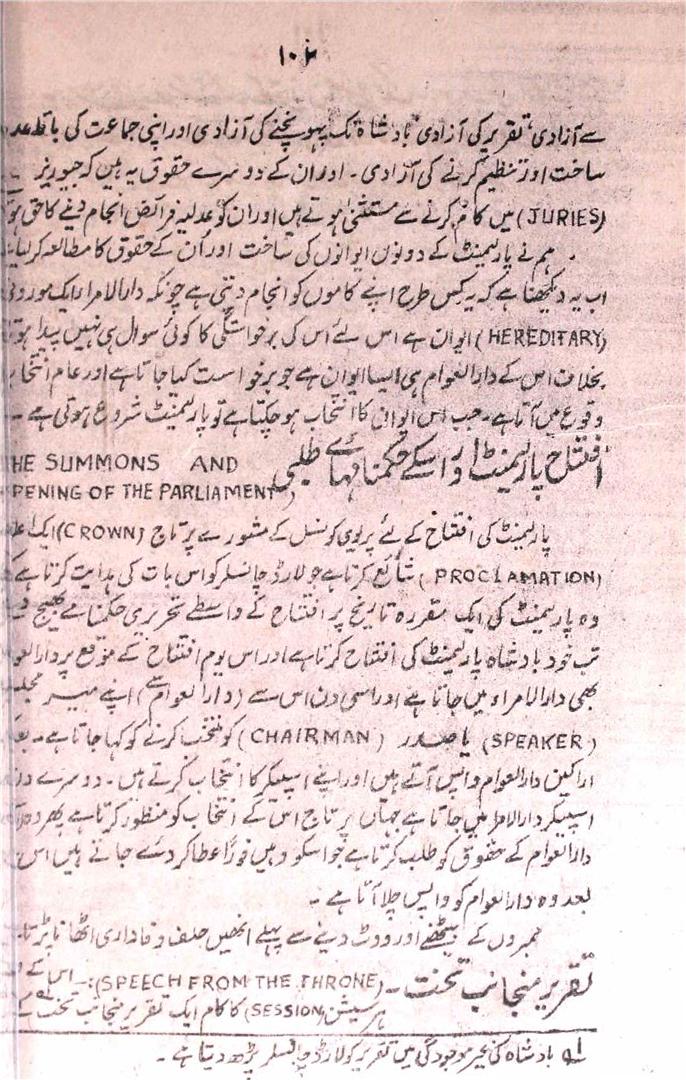 ۱۰۲
سے آزادی، تقریر کی آزادی بادشاہ تک پہونچنے کی آزادی اور اپنی جماعت کی با قاعدہ
ساخت اور تنظیم کرنے کی آزادی ۔ اور ان کے دوسرے حقوق یہ ہیں کہ جیوریز
(JURIES) میں کام کرنے سے مستثنیٰ ہوتے ہیں اور ان کو عدلیہ فرائض انجام دینے کا حق
ہم نے پارلیمنٹ کے دونوں ایوانوں کی ساخت اور اُن کے حقوق کا مطالعہ کر لیا
اب یہ دیکھنا ہے کہ یہ کس طرح اپنے کاموں کو انجام دیتی ہے چونکہ دارالامرا ایک موروثی
(HEREDITARY) ایوان ہے اس لئے اس کی برخواستگی کا کوئی سوال ہی نہیں پیدا ہوتا
بخلاف اس کے دارالعوام ہی ایسا ایوان ہے جو برخواست کیا جاتا ہے اور عام انتخاب
وقوع میں آتا ہے ۔ جب اس ایوان کا انتخاب ہو چکتا ہے تو پارلیمنٹ شروع ہوتی ہے ۔
افتتاح پارلیمنٹ اور اسکے حکمنامہائے طلبی (HE SUMMONS AND
PENING OF THE PARLIAMENT
پارلیمنٹ کی افتتاح کے لئے پریوی کونسل کے مشورے پر تاج (CROWN) ایک
(PROCLAMATION) شائع کرتا ہے جو لارڈ چانسلر کو اس بات کی ہدایت کرتا ہے
وہ پارلیمنٹ کی ایک مقررہ تاریخ پر افتتاح کے واسطے تحریری حکمنامے بھیج دے
تب خود بادشاہ پارلیمنٹ کی افتتاح کرتا ہے اور اس یوم افتتاح کے موقع پر دارالعوام
بھی دارالامراء میں جاتا ہے اور اسی دن اس سے (دارالعوام سے) اپنے میر مجلس
(SPEAKER) یا صدر (CHAIRMAN) کو منتخب کرنے کو کہا جاتا ہے ۔
اراکین دارالعوام واپس آتے ہیں اور اپنے اسپیکر کا انتخاب کرتے ہیں ۔ دوسرے دن
اسپیکر دارالامرا میں جاتا ہے جہاں پر تاج اس کے انتخاب کو منظور کرتا ہے پھر وہ
دارالعوام کے حقوق کو طلب کرتا ہے جو اسکو وہیں فوراً عطا کر دئے جاتے ہیں اس
بعد وہ دارالعوام کو واپس چلا آتا ہے ۔
ممبروں کے بیٹھنے اور ووٹ دینے سے پہلے انھیں حلف وفاداری اٹھانا پڑتا
تقریر منجانب تخت ۔ (SPEECH FROM THE THRONE):۔ اس کے
ہر سیشن (SESSION) کا کام ایک تقریر منجانب تخت سے
لہ بادشاہ کی غیر موجودگی میں تقریر کو لارڈ چانسلر پڑھ دیتا ہے ۔